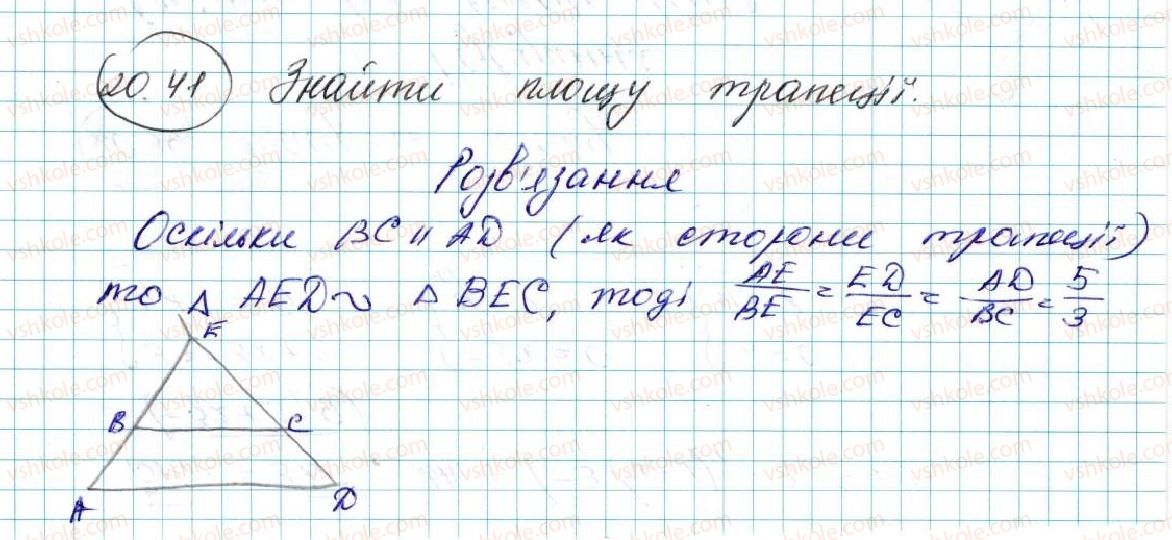 20.41 Знайти площу трапеції.
Розв'язання
Оскільки BC || AD (як сторони трапеції)
то △ AED ~ △ BEC, тоді AE/BE = ED/EC = AD/BC = 5/3
E
B C
A D
vshkole.com